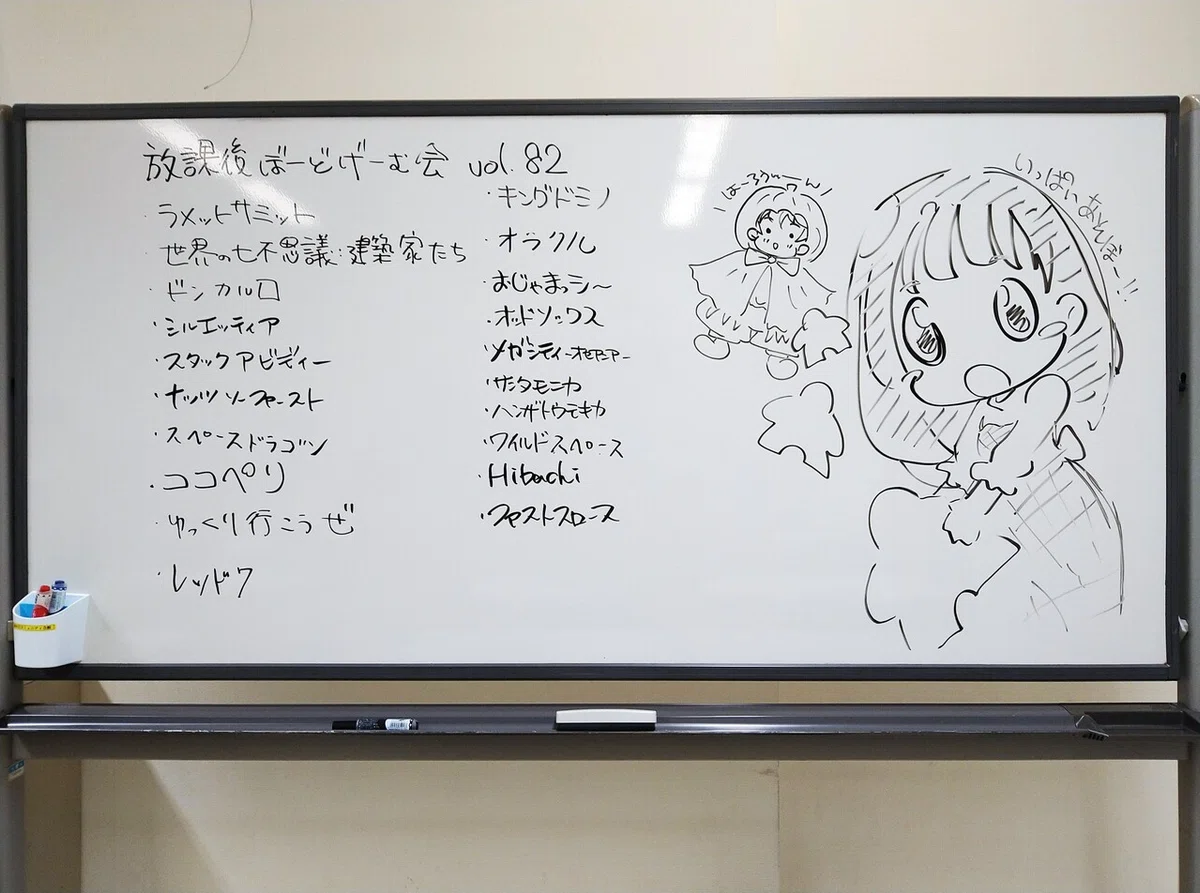 放課後ぼーどげーむ会 vol.82
・ラメットサミット
・世界の七不思議:建築家たち
・ドンカルロ
・シルエッティア
・スタックアビディー
・ナッツソーファースト
・スペースドラゴン
・ココペリ
・ゆっくり行こうぜ
・レッド7
・キングドミノ
・オラクル
・おじゃまっシ〜
・オッドソックス
・メガシティ-オセアニア-
・サンタモニカ
・ハンザトウテキカ
・ワイルドスペース
・Hibachi
・ファストスロース
はーろうぃーん
いっぱいあそんぼー!!